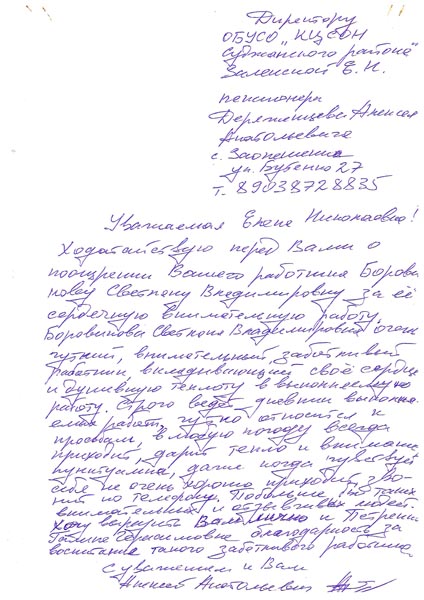 Директору
ОБУСО "КЦСОН
Суджанского района"
Заленской Е. Н.
пенсионера
Деряженцева Алексея
Анатольевича
с. Заолешенка
ул. Бутенко 27
т. 89038728835
Уважаемая Елена Николаевна!
Ходатайствую перед Вами о
поощрении Вашего работника Борови
кову Светлану Владимировну за её
сердечную внимательную работу.
Боровикова Светлана Владимировна очень
чуткий, внимательный, заботливый
работник, вкладывающий своё сердце
и душевную теплоту в выполняемую
работу. Строго ведёт дневник выполне
ния работ, чутко относится к
просьбам, в любую погоду всегда
приходит, дарит тепло и внимание
пунктуальна, даже когда чувствует
себя не очень хорошо приходит, зво
нит по телефону. Побольше бы таких
внимательных и отзывчивых людей.
Хочу выразить Вам лично и
Галине благодарность за
воспитание такого заботливого работника
С уважением к Вам
Алексей Анатольевич